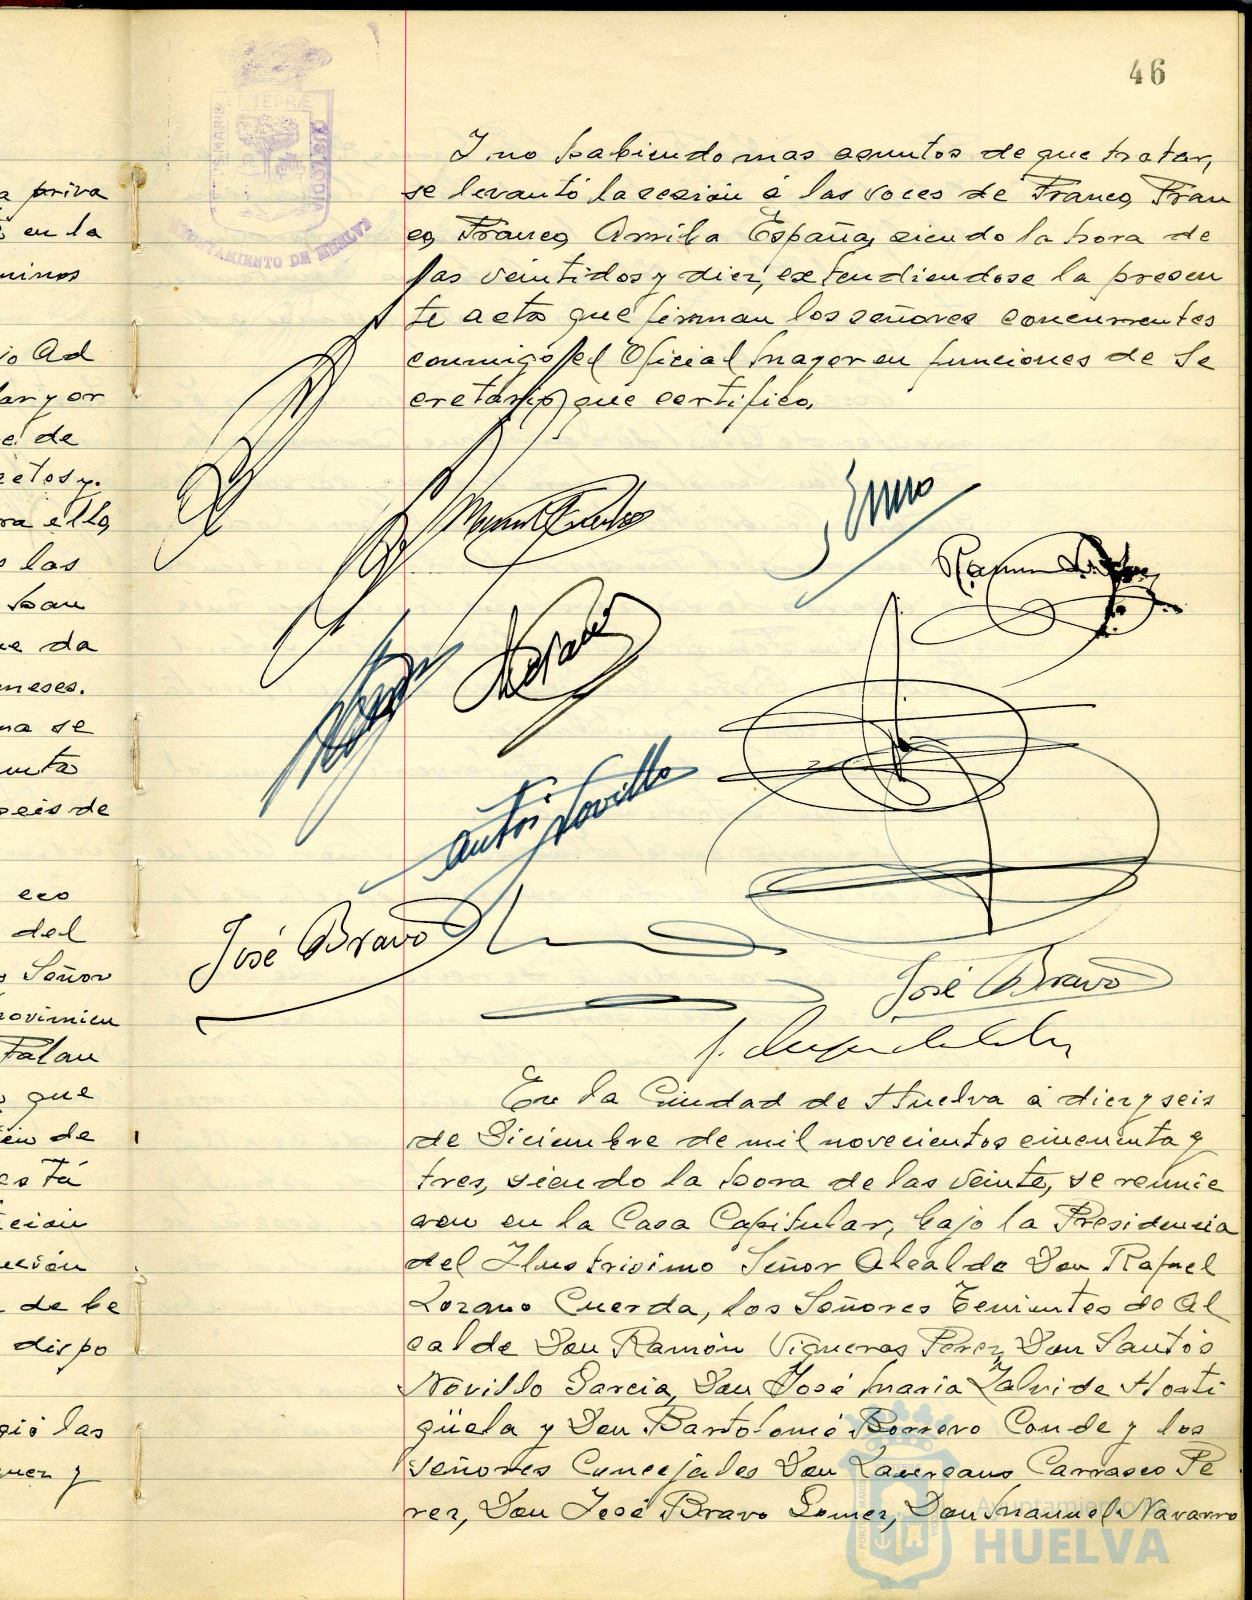 46
AYUNTAMIENTO DE HUELVA
a priva
en la
minos
io Ad
lar y or
e de
retos y
ra ello,
s las
han
ue da
meses.
ma se
unta
seis de
eco
del
Señor
rovimien
Palau
que
de
está
ción
de be
dispo
gió las
y
Y no habiendo mas asuntos de que tratar,
se levantó la sesión á las voces de Franco, Fran
co, Franco, Arriba España, siendo la hora de
las veintidos y diez, extendiendose la presen
te acta que firman los señores concurrentes
conmigo, el Oficial Mayor en funciones de Se
cretario, que certifico.
Novillo
José Bravo
José Bravo
En la Ciudad de Huelva á diez y seis
de Diciembre de mil novecientos cincuenta y
tres, siendo la hora de las veinte, se reunie
ron en la Casa Capitular, bajo la Presidencia
del Ilustrisimo Señor Alcalde Don Rafael
Lozano Cuerda, los Señores Tenientes de Al
calde Don Ramón Vigueras Perez, Don Santós
Novillo Garcia, Don José Maria Zalvide Horti
güela y Don Bartolomé Borrero Conde y los
señores Concejales Don Laureano Carrasco Pe
rez, Don José Bravo Gomez, Don Manuel Navarro
Ayuntamiento de
HUELVA